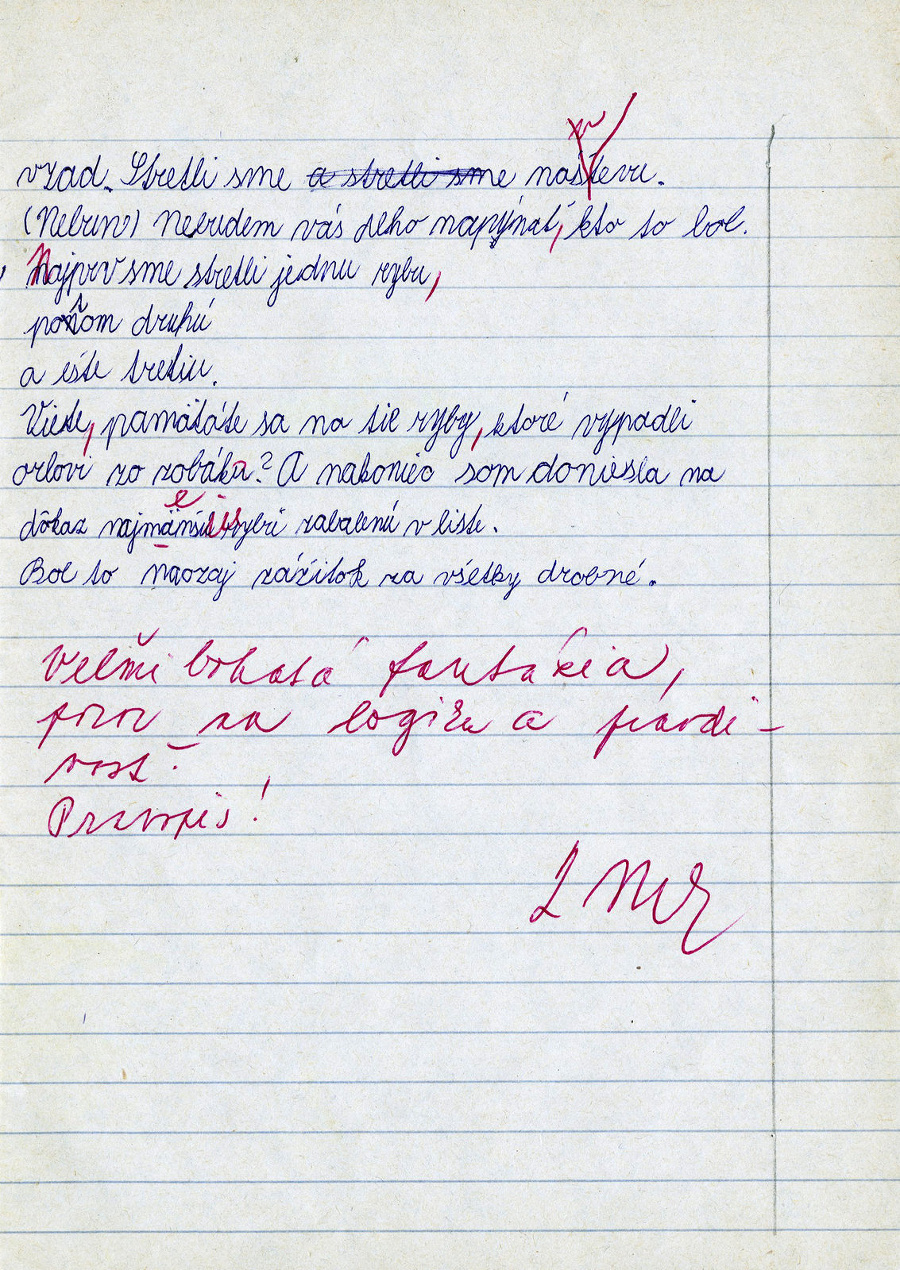 vzad. Stretli sme a stretli sme naštevu.
(Nebun) Nebudem vás dlho napýnať, kto to bol.
Najprv sme stretli jednu rybu,
potom druhú
a ešte tretiu.
Viete, pamätáte sa na tie ryby, ktoré vypadli
orlovi zo zobáka? A nakoniec som doniesla na
dôkaz rybu zabalenú v liste.
Bol to naozaj zážitok za všetky drobné.
Veľmi bohatá fantázia,
pozor na logiku a pravdi-
vosť.
Pravopis!